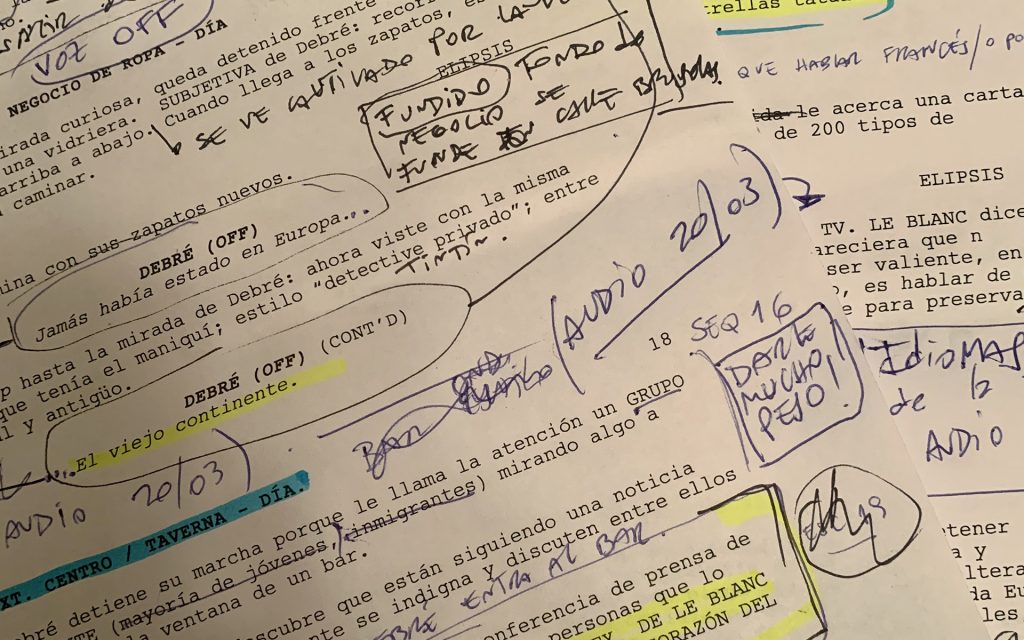 VOZ OFF
NEGOCIO DE ROPA - DÍA
irada curiosa, queda detenido frente
una vidriera. SUBJETIVA de Debré: recorr
arriba a abajo. Cuando llega a los zapatos, es
caminar.
SE VE CAUTIVADO POR
ELIPSIS
FUNDIDO FONDO de
NEGOCIO SE
FUNDE EN CALLE BRUSELAS.
ina con sus zapatos nuevos.
DEBRÉ (OFF)
Jamás había estado en Europa...
p hasta la mirada de Debré: ahora viste con la misma
que tenía el maniquí; estilo "detective privado"; entre
l y antigüo.
TINTÍN.
DEBRÉ (OFF) (CONT'D)
...El viejo continente.
AUDIO 20/03)
BAR
(AUDIO 20/03)
18
SEQ 16
DARLE
MUCHO
PESO!
XT. CENTRO / TAVERNA - DÍA.
bré detiene su marcha porque le llama la atención un GRUPO
NTE (mayoría de jóvenes, inmigrantes) mirando algo a
la ventana de un bar.
scubre que están siguiendo una noticia
nte se indigna y discuten entre ellos
DEBRÉ ENTRA AL BAR.
onferencia de prensa de
personas que lo
EY. DE LE BLANC
ORAZÓN DEL
trellas tatu
QUE HABLAR FRANCÉS/O PO
le acerca una carta
de 200 tipos de
ELIPSIS
TV. LE BLANC dice
areciera que n
ser valiente, en
, es hablar de
e para preserva
IdioMAS
de 1/2
AUDIO
tener
a y
ltera
da Eu
les